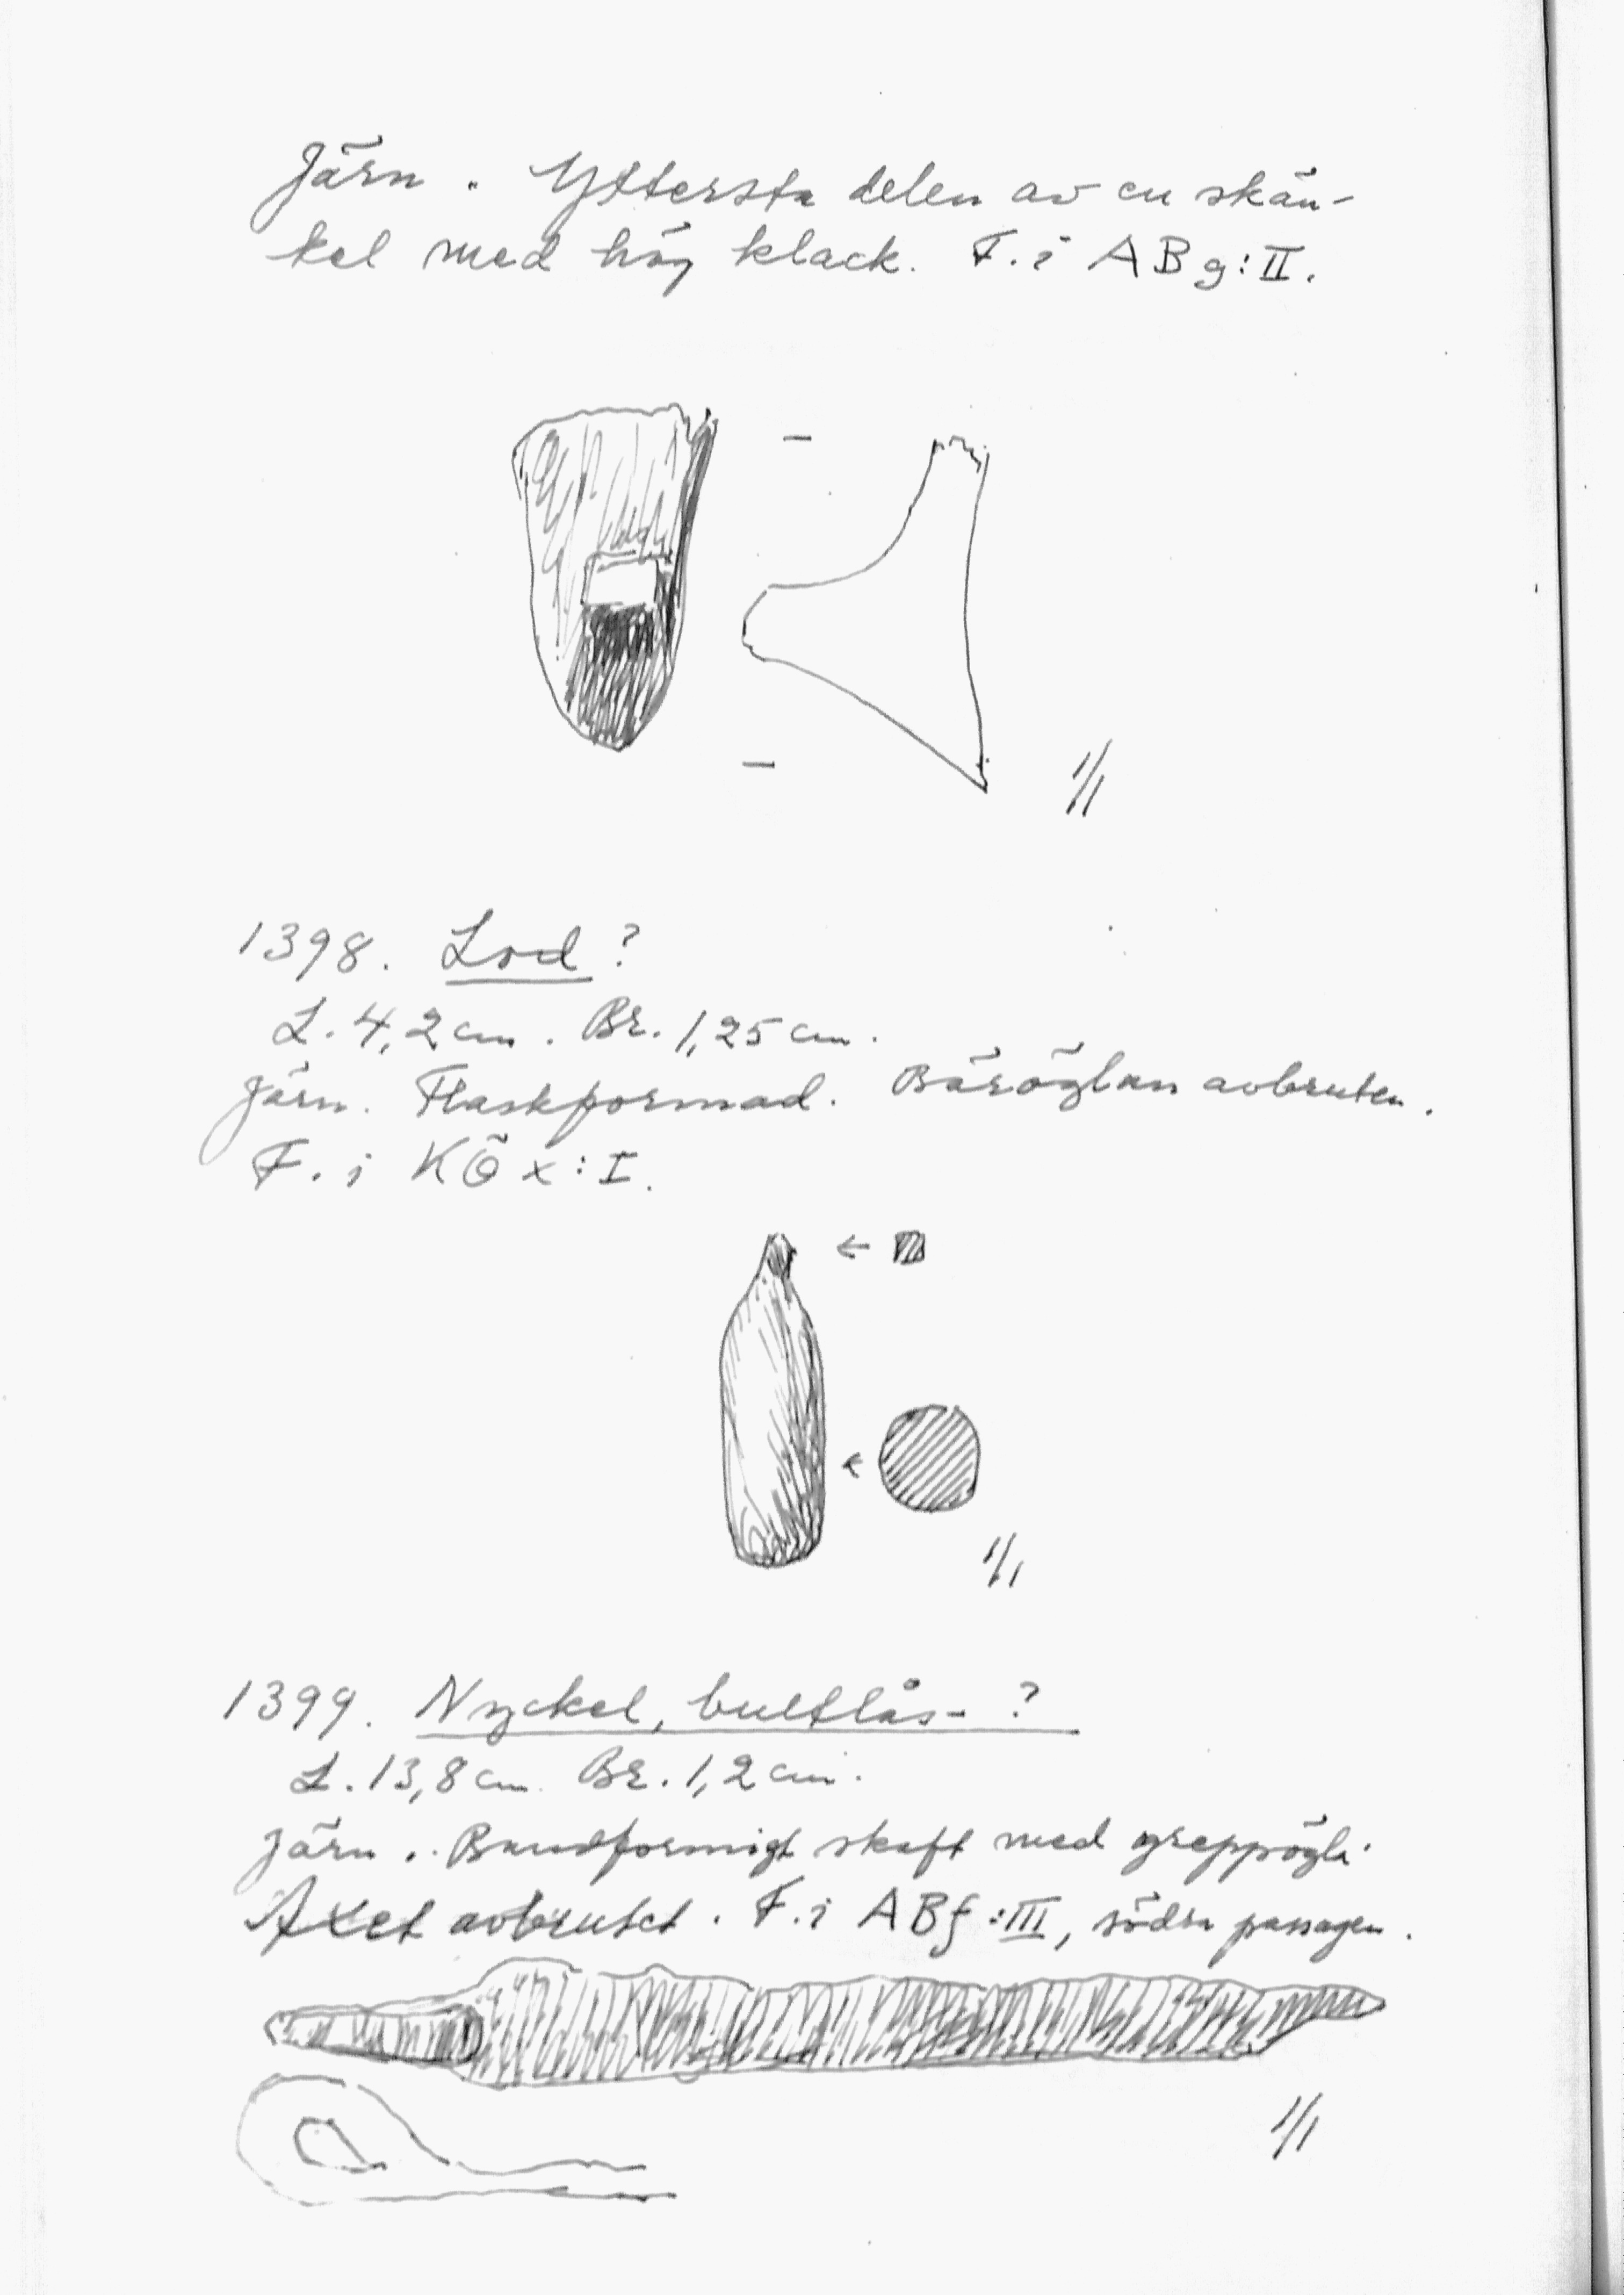 Järn. Yttersta delen av en skän-
kel med hög klack. F. i ABg:II.
1/1
1398. Lod?
L. 4,2 cm. Br. 1,25 cm.
Järn. Flaskformad. Bäröglan avbruten.
F. i KÖx:I.
1/1
1399. Nyckel, bultlås-?
L. 13,8 cm. Br. 1,2 cm.
Järn. Bandformigt skaft med greppögla.
Axet avbrutet. F. i ABf:III, södra passagen.
1/1